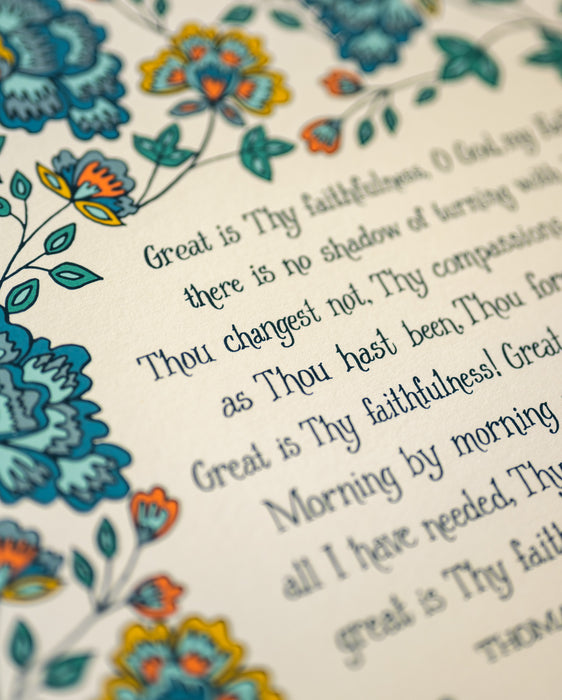 Great is Thy faithfulness, O God my
there is no shadow of turning with
Thou changest not, Thy compassions
as Thou hast been, Thou
Great is Thy faithfulness! Great
Morning by morning
all I have needed, Thy
great is Thy